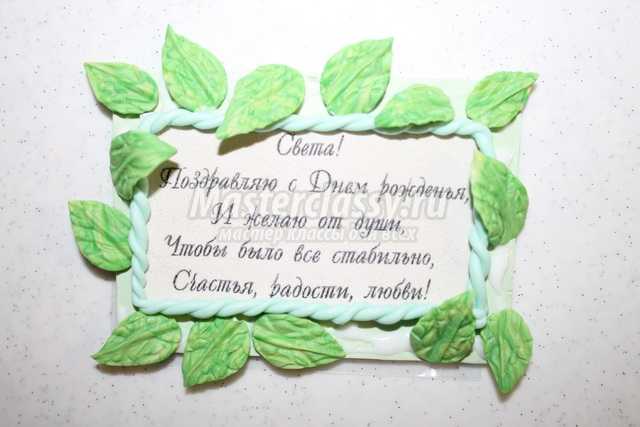 Света!
Поздравляю с Днем рожденья,
Masterclassy.ru
И желаю от души,
мастер классы для всех
Чтобы было все стабильно,
Счастья, радости, любви!